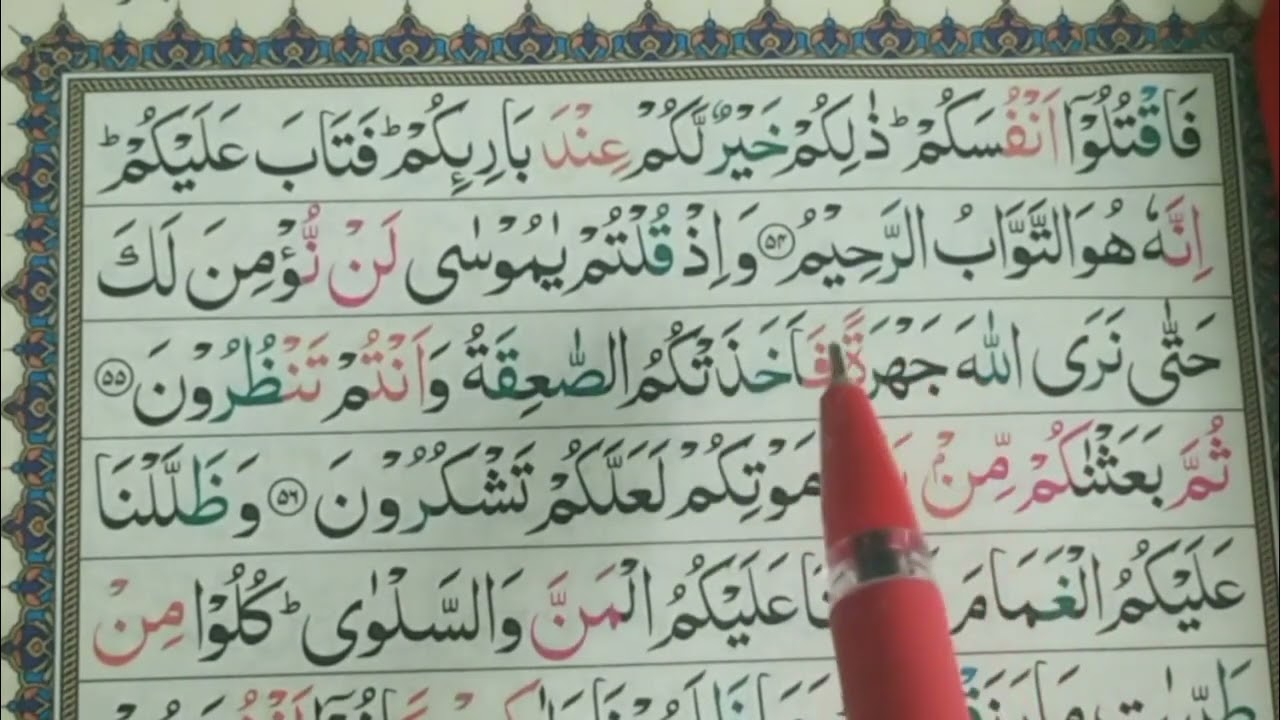 فَاقْتُلُوْۤا اَنْفُسَكُمْ ؕ ذٰلِكُمْ خَيْرٌ لَّكُمْ عِنْدَ بَارِئِكُمْ ؕ فَتَابَ عَلَيْكُمْ ؕ
اِنَّهٗ هُوَ التَّوَّابُ الرَّحِيْمُ ﴿۵۴﴾ وَ اِذْ قُلْتُمْ يٰمُوْسٰى لَنْ نُّؤْمِنَ لَكَ
حَتّٰى نَرَى اللّٰهَ جَهْرَةً فَاَخَذَتْكُمُ الصّٰعِقَةُ وَ اَنْتُمْ تَنْظُرُوْنَ ﴿۵۵﴾
ثُمَّ بَعَثْنٰكُمْ مِّنْۢ مَوْتِكُمْ لَعَلَّكُمْ تَشْكُرُوْنَ ﴿۵۶﴾ وَ ظَلَّلْنَا
عَلَيْكُمُ الْغَمَامَ عَلَيْكُمُ الْمَنَّ وَ السَّلْوٰى ؕ كُلُوْا مِنْ